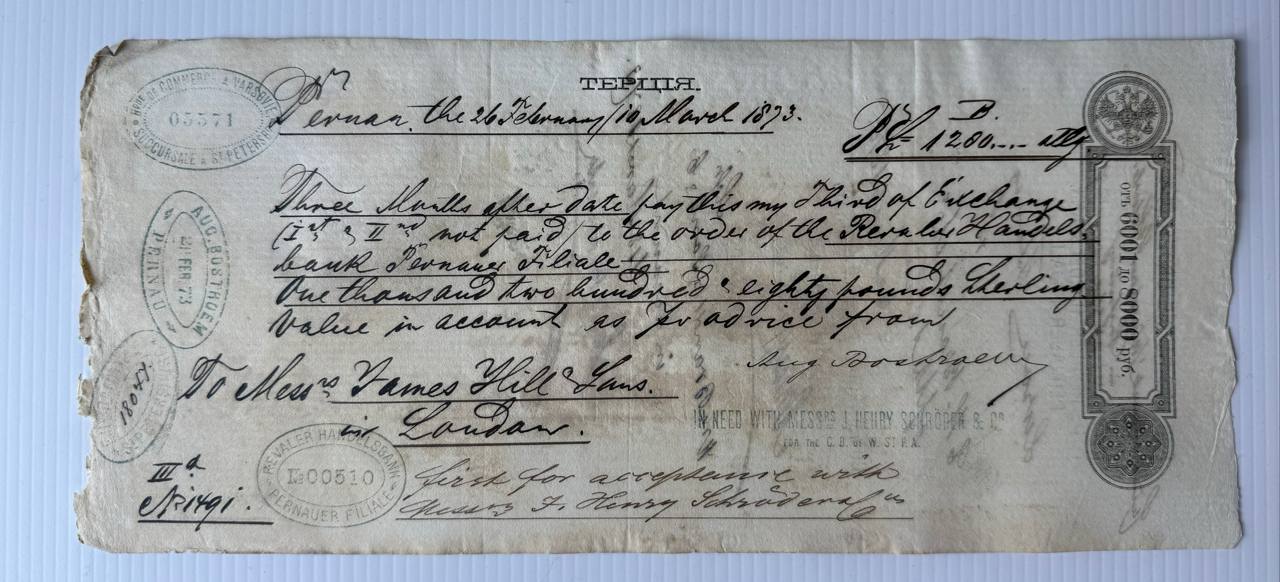 ТЕРЦІЯ.
Pernau, the 26 February/10 March 1873.
B.
1280.-.- stlg
Three Months after date pay this my Third of Exchange
(Ist & IInd not paid) to the order of the Revaler Handels-
bank Pernauer Filiale
One thousand two hundred & eighty pounds Sterling
Value in account as pr advice from
Aug Bostroem
To Messrs James Hill & Sons.
in London.
IN NEED WITH MESSRS J. HENRY SCHRÖDER & Co
FOR THE C. B. OF W. ST P.A.
first for acceptance with
Messrs J. Henry Schröder & Co
IIId
No 1491.
REVALER HANDELSBANK
No 00510
PERNAUER FILIALE
DE COMMERCE A VARSOVIE
05571
SUCCURSALE A ST PETERSB
AUG. BOSTROEM
26 FEB 73
PERNAU
18057.
отъ 6001 до 8000 руб.